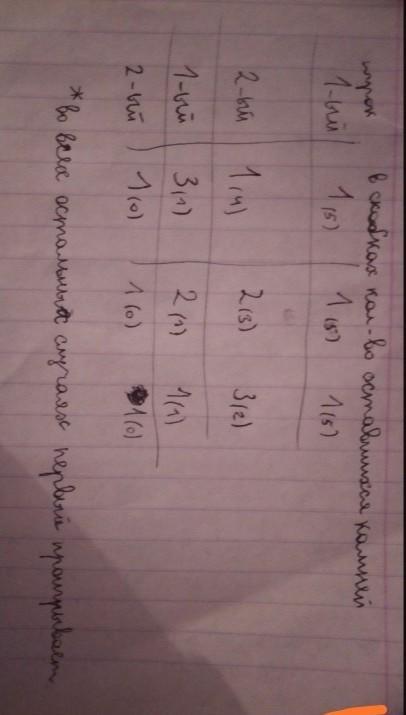 в скобках кол-во оставшихся камней
игрок
1-ый 1(5) 1(5) 1(5)
2-ый 1(4) 2(3) 3(2)
1-ый 3(1) 2(1) 1(1)
2-ый 1(0) 1(0) 1(0)
*во всех остальных случаях первый проигрывает